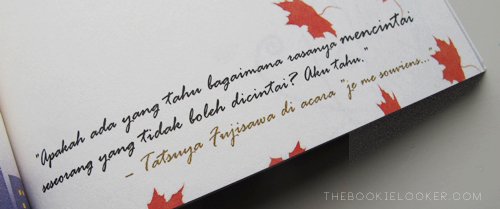 "Apakah ada yang tahu bagaimana rasanya mencintai
seseorang yang tidak boleh dicintai? Aku tahu."
- Tatsuya Fujisawa di acara "je me souviens..."
THEBOOKIELOOKER.COM